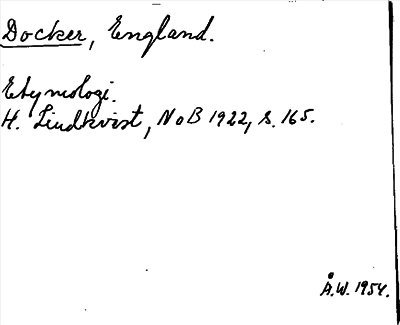 Docker, England.
Etymologi.
H. Lindkvist, NoB 1922, s. 165.
Å.W. 1954.